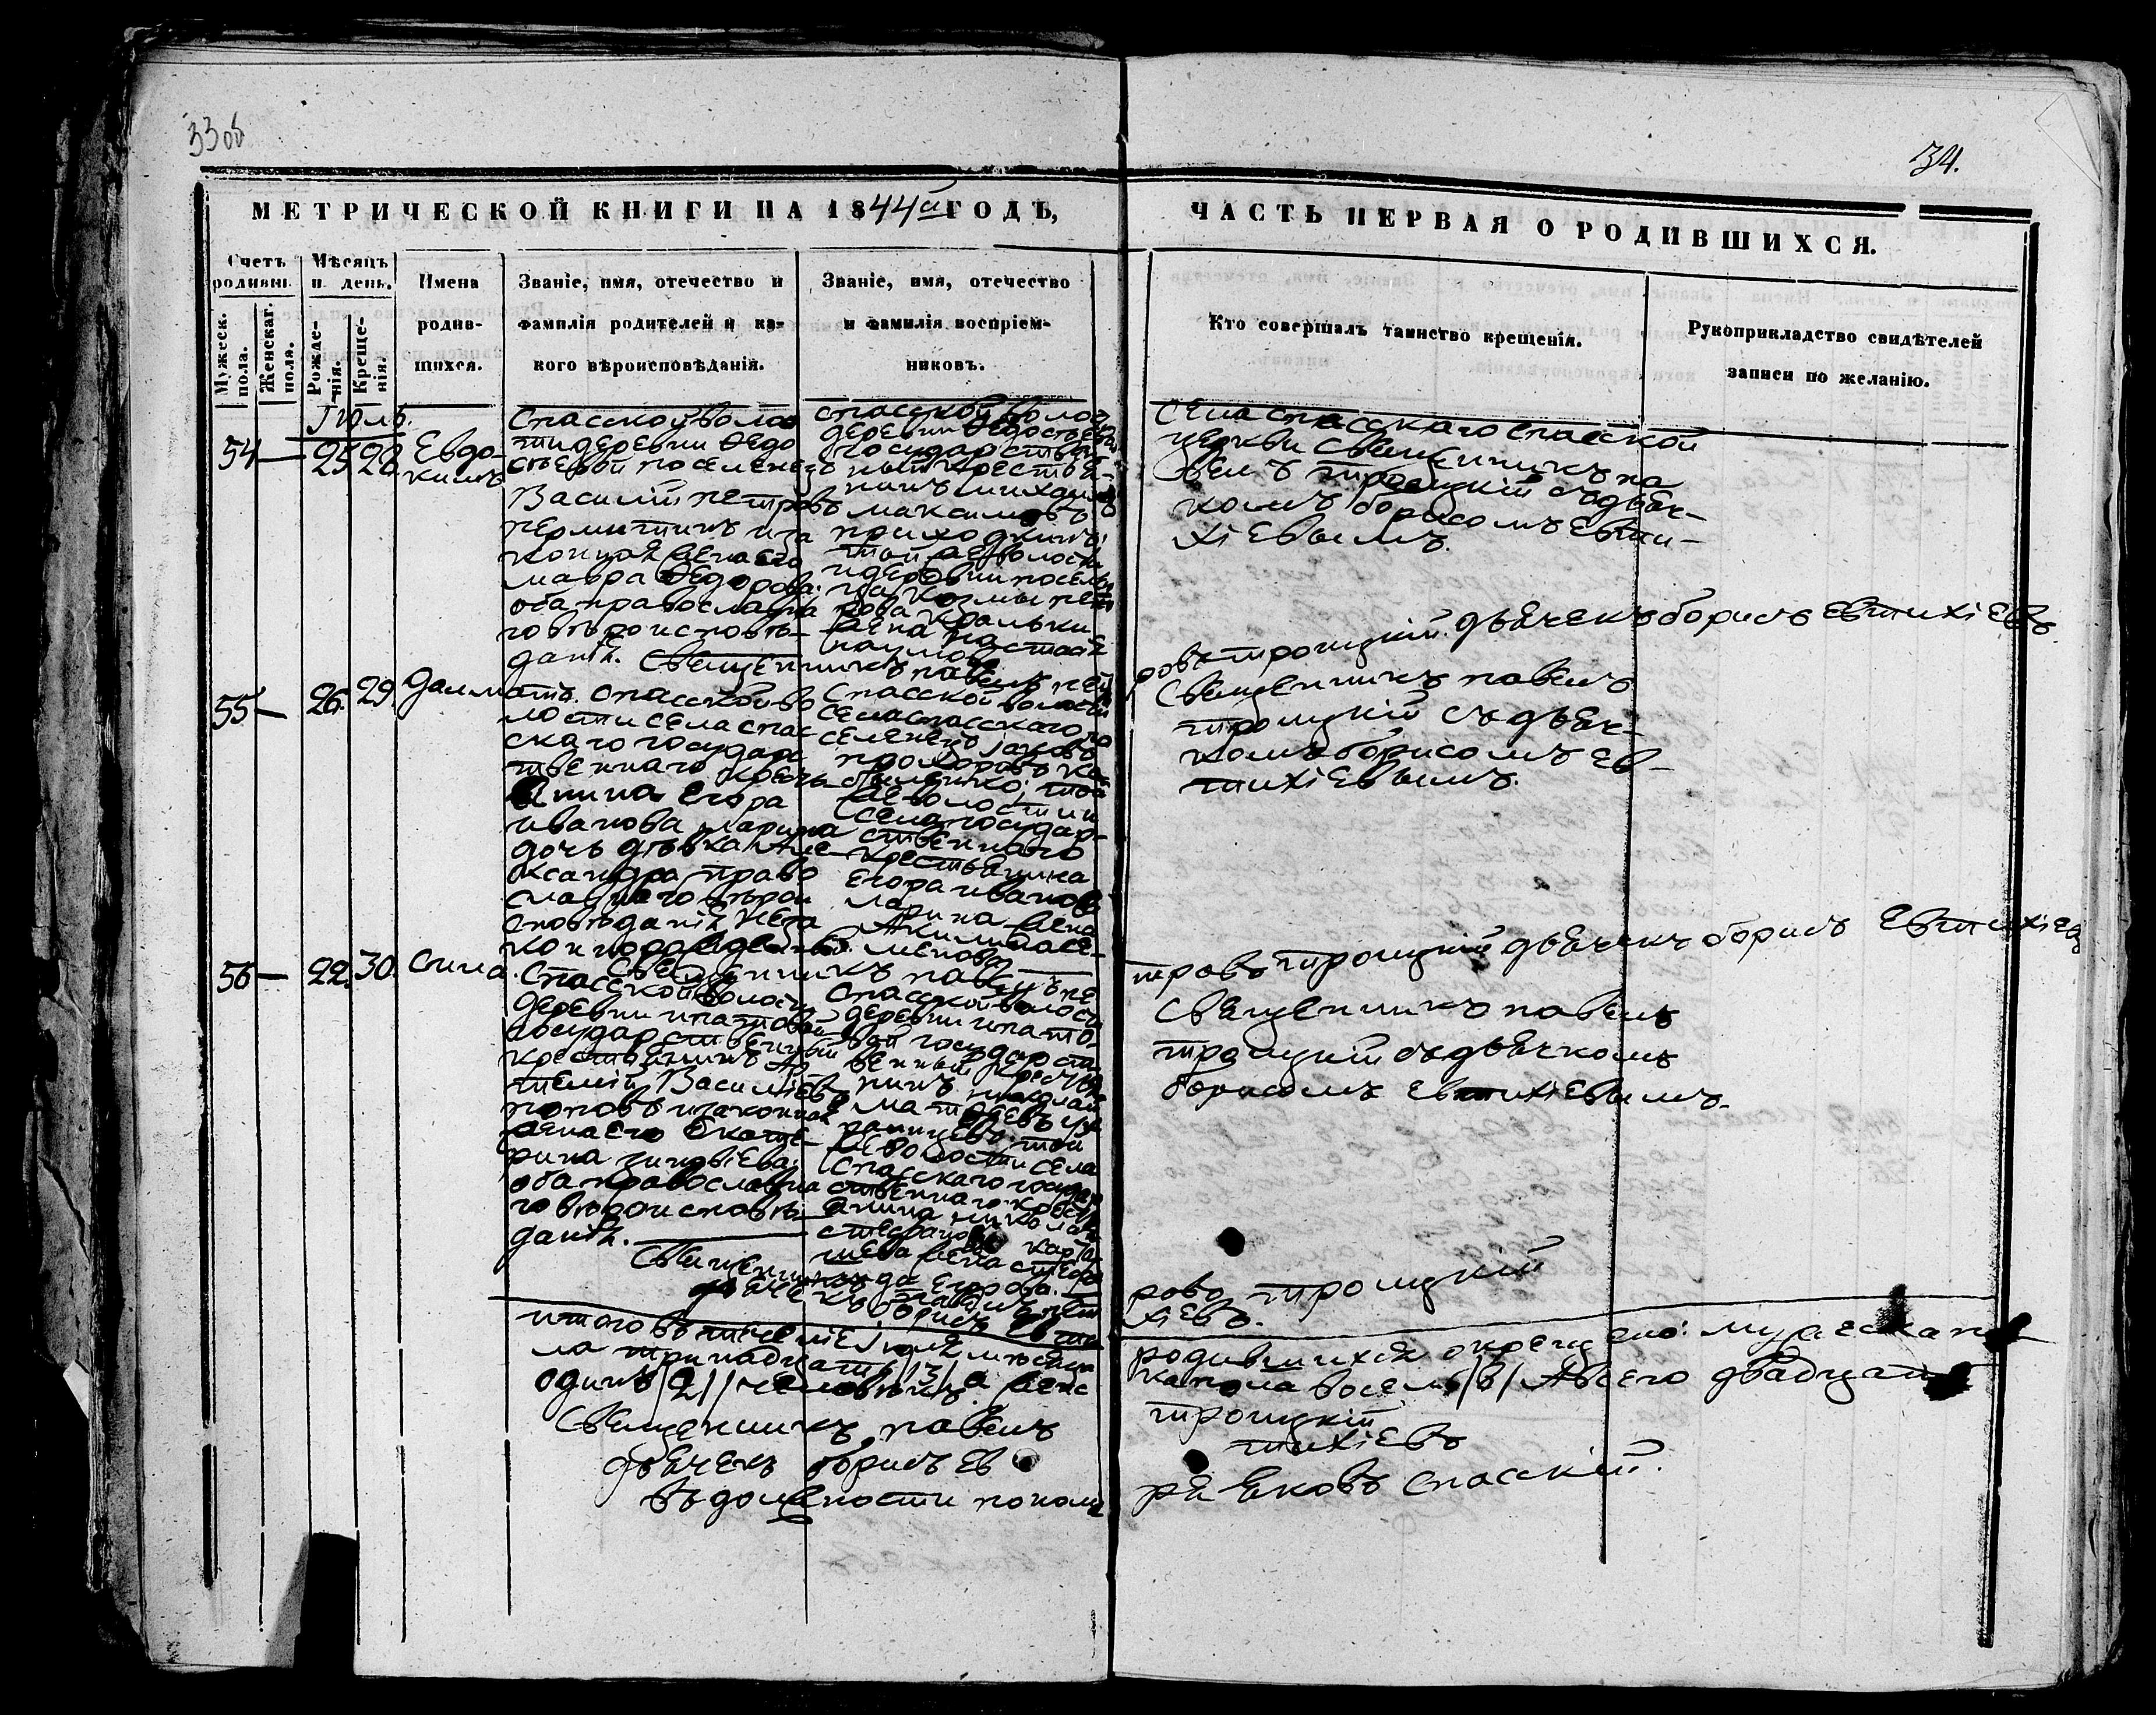 33 об
34.
МЕТРИЧЕСКОЙ КНИГИ НА 1844й ГОДЪ,
ЧАСТЬ ПЕРВАЯ О РОДИВШИХСЯ.
Счетъ родивш.
Мужеск. пола.
Женскаг. пола.
Мѣсяцъ и день.
Рожде-
нія.
Креще-
нія.
Имена
родив-
шихся.
Званіе, имя, отечество и
фамилія родителей и ка-
кого вѣроисповѣданія.
Званіе, имя, отечество
и фамилія воспріем-
никовъ.
Кто совершалъ таинство крещенія.
Рукоприкладство свидѣтелей
записи по желанію.
Іюль.
54 — 25 28. Евдо-
кимъ
Спасской воло
сти деревни Ѳедо
сѣевой поселенецъ
Василій Петровъ
Пермитинъ и за
конная жена его
Мавра Ѳедорова:
оба православна
го вѣроисповѣ-
данія.
Спасской воло
деревни Ѳедосѣев
государствен
ный крестья-
нинъ Михаилъ
Максимовъ
Приходкинъ:
той же волости
и деревни поселен
ца Козмы Пет
рова
жена Настас
Наумова
Села Спасскаго Спасской
церкви Священникъ Па
велъ Троицкій съ дьяч-
комъ Борисомъ Евти-
хіевымъ.
Священникъ Павелъ Пет
ровъ Троицкій. дьячекъ Борисъ Евтихіевъ
55 — 26. 29. Далматъ.
Спасской во
лости села Спас
скаго государс
твеннаго кресть
янина Егора
Иванова Марина
дочь дѣвка Але
ксандра право
славнаго вѣрои
сповѣданія неза
конно
Спасской волости
села Спасскаго по
селенецъ Іаковъ
Прохоровъ
той
же волости и
села государ-
ственнаго
крестьянина
Егора Иванова
Марина жена
Акилина Се-
менова
Священникъ Павелъ
Троицкій съ дьяч-
комъ Борисомъ Ев-
тихіевымъ.
Священникъ Павелъ Пе
тровъ Троицкій дьячекъ Борисъ Евтихіевъ
56 — 22. 30. Сила.
Спасской волости
деревни Ипатовой
государственный
крестьянинъ Ар
темій Василіевъ
Поповъ и законная
жена его Екате-
рина Зиновіева:
оба православна
го вѣроисповѣ-
данія.
Спасской волости
деревни Ипато-
вой государст
венный кресть
нинъ Николай
Матвѣевъ
той
же волости села
Спасскаго государ
ственнаго кресть
янина Николая
Стефанова Карта
шева жена Степа
нида Егорова.
Священникъ Павелъ
Троицкій съ дьячкомъ
Борисомъ Евтихіевымъ.
Священникъ Павелъ Пет
ровъ Троицкій
дьячекъ Борисъ Евти
хіевъ.
Итого въ теченіе Іюля мѣсяца родившихся окрещено: мужеска по
ла тринадцать /13/ а женс
ка пола восемь /8/ А всего двадцать
одинъ /21/ человѣкъ.
Священникъ Павелъ Троицкій
дьячекъ Борисъ Ев
тихіевъ
въ должности понома
ря Яковъ Спасскій.